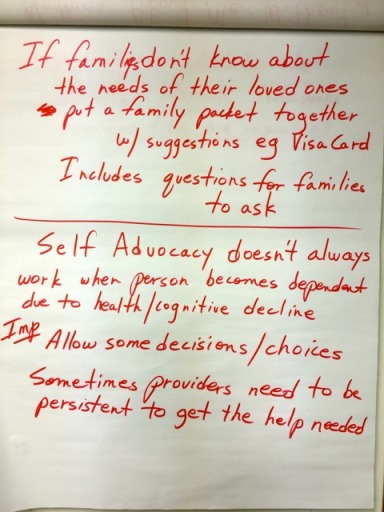 If families don't know about
the needs of their loved ones
put a family packet together
w/ suggestions eg Visa Card
Includes questions for families
to ask
Self Advocacy doesn't always
work when person becomes dependent
due to health/cognitive decline
Imp Allow some decisions/choices
Sometimes providers need to be
persistent to get the help needed